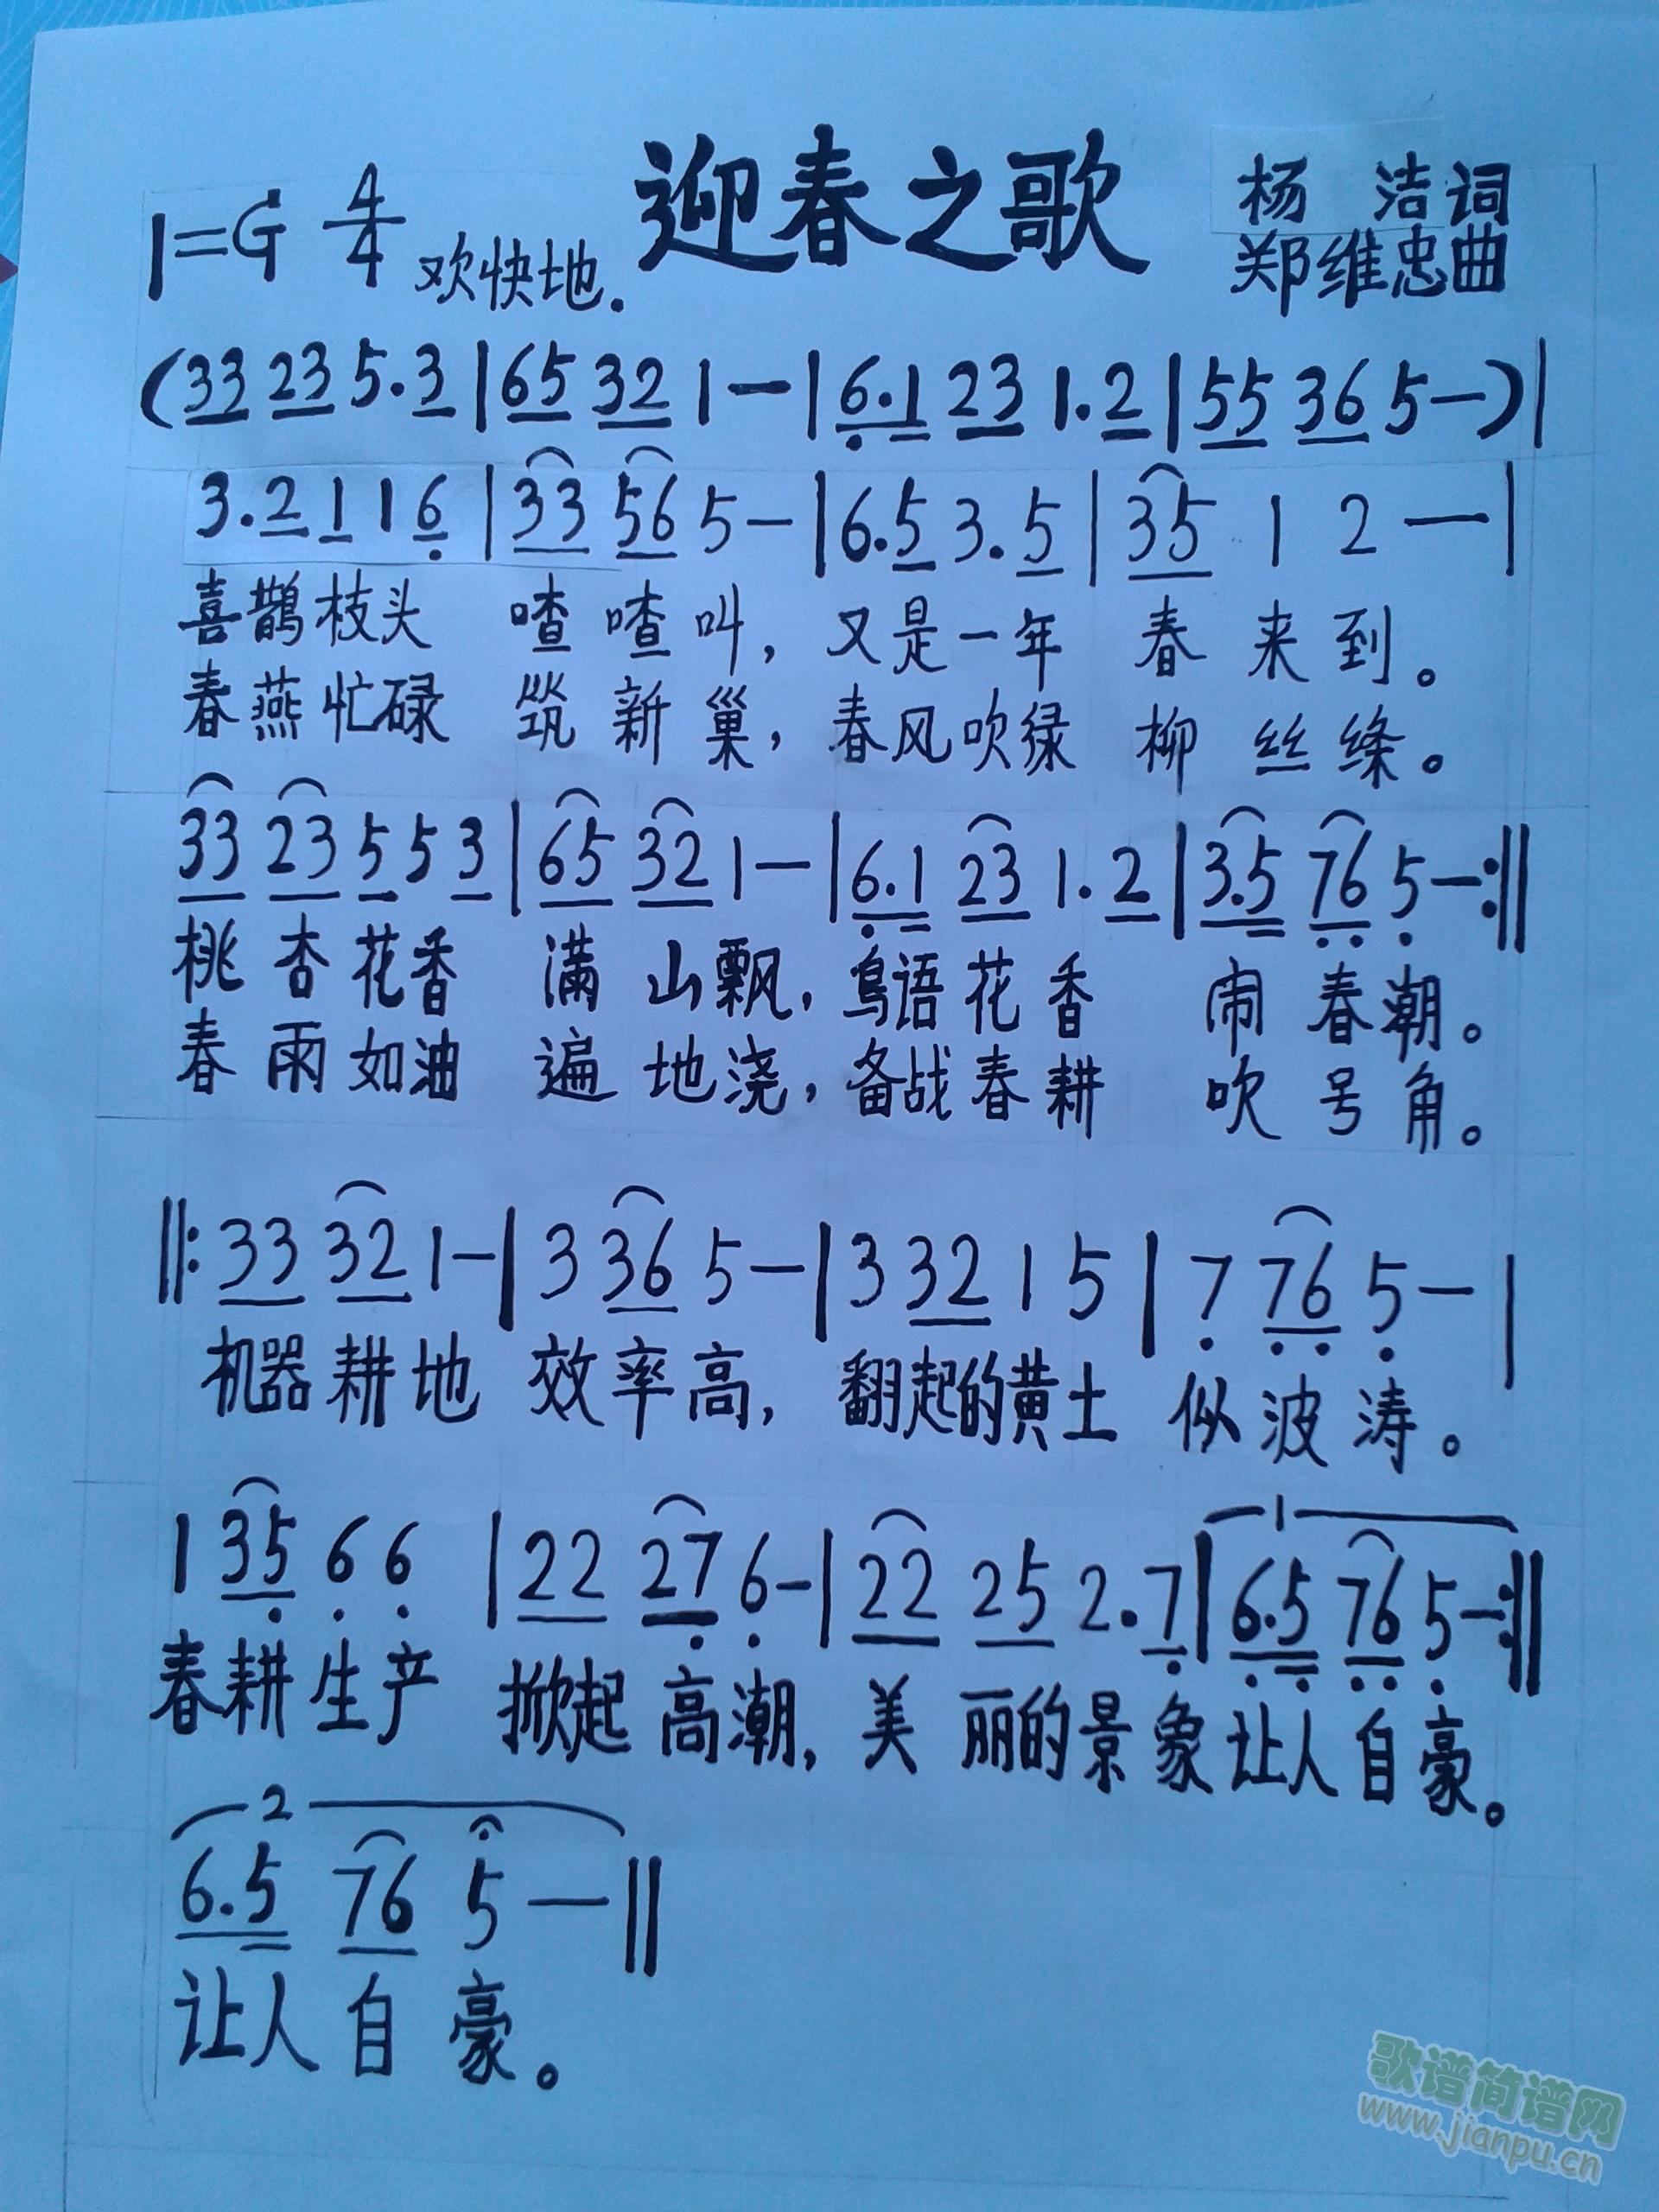 迎春之歌
1=G 4/4 欢快地.
杨 洁词
郑维忠曲
(33 23 5.3|65 32 1—|6.1 23 1.2|55 36 5—)|
3.2 1 1 6|33 56 5—|6.5 3.5|35 1 2—|
喜鹊枝头 喳喳叫，又是一年 春来到。
春燕忙碌 筑新巢，春风吹绿 柳丝绦。
33 23 5 5 3|65 32 1—|6.1 23 1.2|3.5 76 5—:||
桃杏花香 满山飘，鸟语花香 闹春潮。
春雨如油 遍地浇，备战春耕 吹号角。
||:33 32 1—|3 36 5—|3 32 1 5|7 76 5—|
机器耕地 效率高，翻起的黄土 似波涛。
1 35 6 6|22 27 6—|22 25 2.7|1 6.5 76 5—:||
春耕生产 掀起高潮，美丽的景象让人自豪。
2
6.5 76 5—||
让人自豪。
歌谱简谱网
www.jianpu.cn